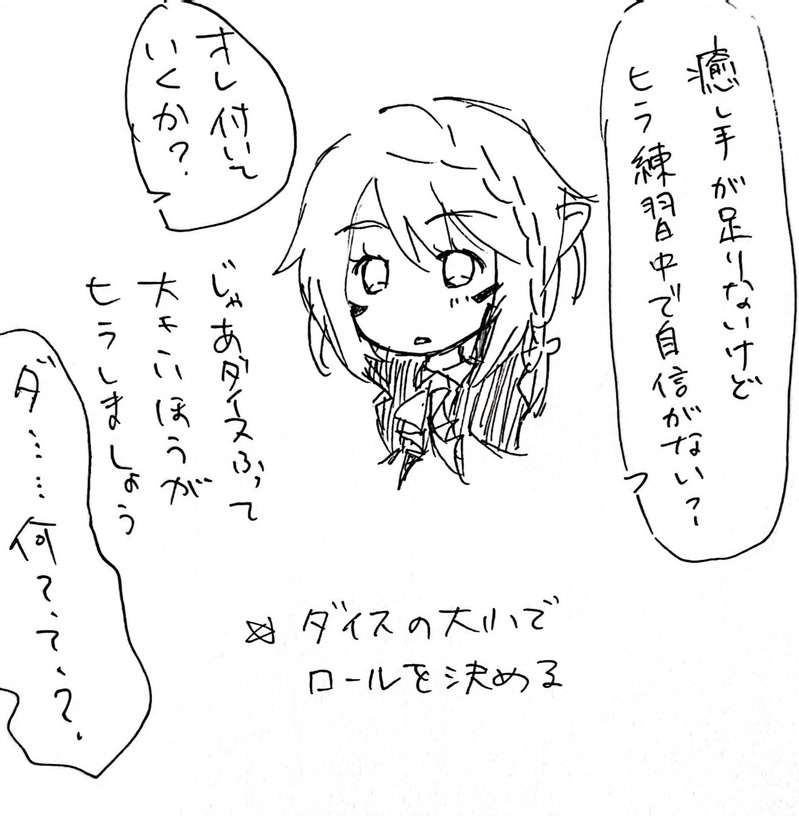 癒し手が足りないけど
ヒラ練習中で自信がない?
オレ付いて
いくか?
じゃあダイスふって
大きいほうが
ヒラしましょう
ダ……何て、て、?、
※ダイスの大小で
ロールを決める